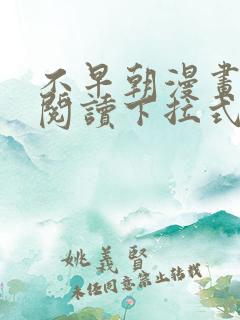 不早朝漫畫
閱讀下拉式
姚義賢
未经同意禁止转载